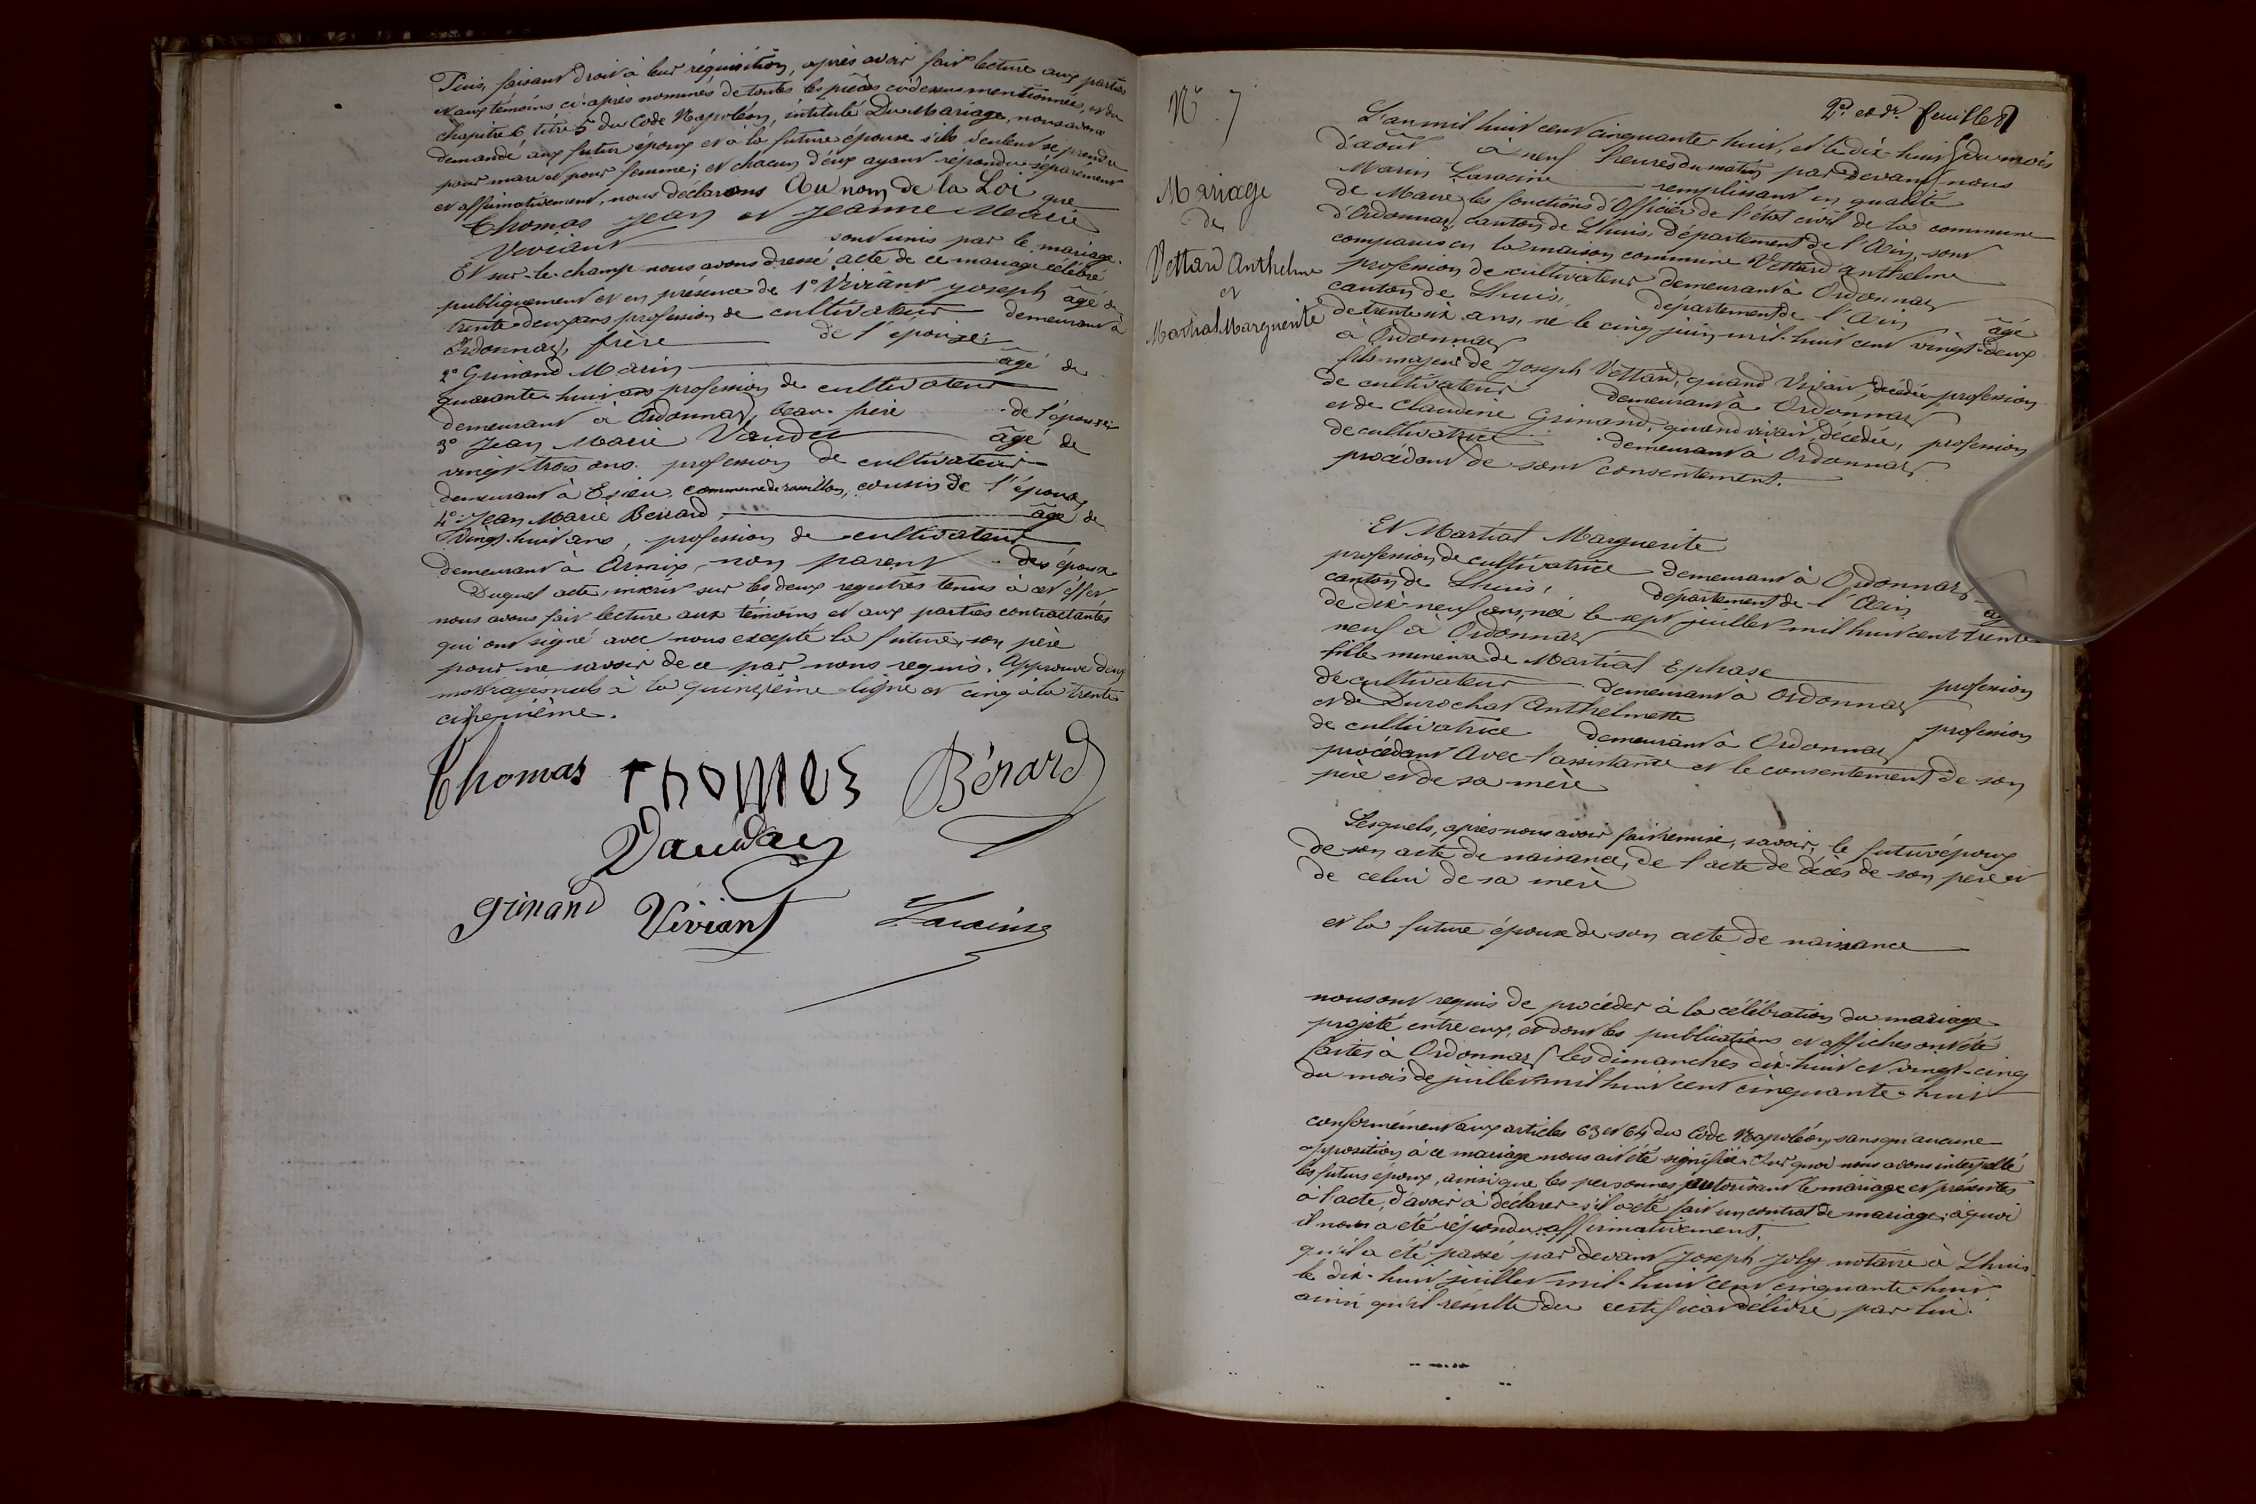 Puis, faisant droit à leur réquisition, après avoir fait lecture aux parties
et aux témoins ci-après nommés de toutes les pièces ci-dessus mentionnées, et du
chapitre 6 titre 5 du Code Napoléon, intitulé Du Mariage, nous avons
demandé aux futur époux et à la future épouse s'ils veulent se prendre
pour mari et pour femme; et chacun d'eux ayant répondu séparément
et affirmativement, nous déclarons Au nom de la Loi que
Thomas Jean et Jeanne Marie
Viviant sont unis par le mariage.
Et sur-le-champ nous avons dressé acte de ce mariage célébré
publiquement et en présence de 1° Viviant Joseph âgé de
trente deux ans profession de cultivateur demeurant à
Ordonnaz, frère de l'épouse;
2° Grinand Marin âgé de
quarante huit ans profession de cultivateur
demeurant à Ordonnaz, beau-père de l'épouse
3° Jean Marie Vauday âgé de
vingt-trois ans profession de cultivateur
demeurant à Esieu, commune de, cousin de l'époux,
4° Jean Marie Berrard, âgé de
Vingt-huit ans, profession de cultivateur
demeurant à Armix, non parent des époux
Duquel acte, inscrit sur les deux registres tenus à cet effet,
nous avons fait lecture aux témoins et aux parties contractantes
qui ont signé avec nous excepté la future, son père
pour ne savoir de ce par nous requis. Approuvé deux
mots rayés nuls à la quinzième ligne et cinq à la trente
cinquième.
Thomas Thomas Bérard
Vauday
Grinand Viviant Laracine
N° 7
Mariage
de
Vettard Anthelme
et
Martial Marguerite
2e et dr. feuillet
L'an mil huit cent cinquante-huit, et le dix-huit du mois
d'août à neuf heures du matin par devant nous
Marin Laracine remplissant en qualité
de Maire les fonctions d'Officier de l'état civil de la commune
d'Ordonnaz, canton de Lhuis, département de l'Ain, sont
comparus en la maison commune Vettard Anthelme
profession de cultivateur demeurant à Ordonnaz
canton de Lhuis, département de l'Ain âgé
de trente six ans, né le cinq juin mil-huit cent vingt-deux
à Ordonnaz
fils majeur de Joseph Vettard, quand vivait, décédé profession
de cultivateur demeurant à Ordonnaz
et de Claudine Grinand, quand vivait, décédée, profession
de cultivatrice demeurant à Ordonnaz
procédant de son consentement.
Et Martial Marguerite
profession de cultivatrice demeurant à Ordonnaz
canton de Lhuis, département de l'Ain
de dix-neuf ans, née le sept juillet mil huit cent trente
neuf à Ordonnaz
fille mineure de Martial Ephase profession
de cultivateur demeurant à Ordonnaz
et de Durochat Anthelmette profession
de cultivatrice demeurant à Ordonnaz
procédant Avec l'assistance et le consentement de son
père et de sa mère
Lesquels, après nous avoir fait remise, savoir, le futur époux
de son acte de naissance, de l'acte de décès de son père et
de celui de sa mère
et la future épouse de son acte de naissance
nous ont requis de procéder à la célébration du mariage
projeté entre eux, et dont les publications et affiches ont été
faites à Ordonnaz les dimanches dix-huit et vingt-cinq
du mois de juillet mil huit cent cinquante-huit
conformément aux articles 63 et 64 du Code Napoléon, sans qu'aucune
opposition à ce mariage nous ait été signifiée. Sur quoi nous avons interpellé
les futurs époux, ainsi que les personnes autorisant le mariage et présentes
à l'acte, d'avoir à déclarer s'il a été fait un contrat de mariage, à quoi
il nous a été répondu affirmativement,
qu'il a été passé par devant Joseph Joly notaire à Lhuis
le dix-huit juillet mil-huit cent cinquante-huit
ainsi qu'il résulte du certificat délivré par lui.